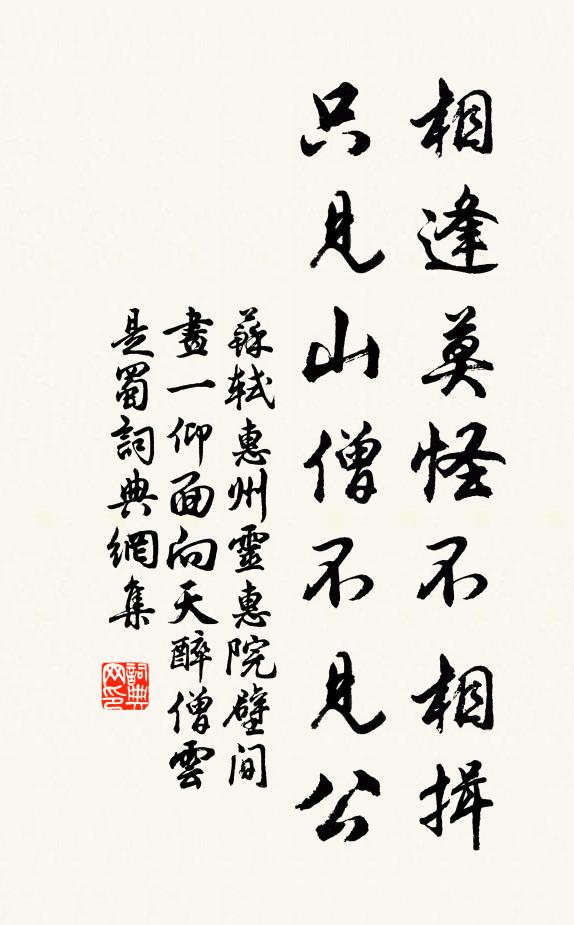 相逢莫怪不相揖
只見山僧不見公
蘇軾惠州靈惠院壁间
畫一仰面向天醉僧雲
是蜀詞典網集
詞典网印